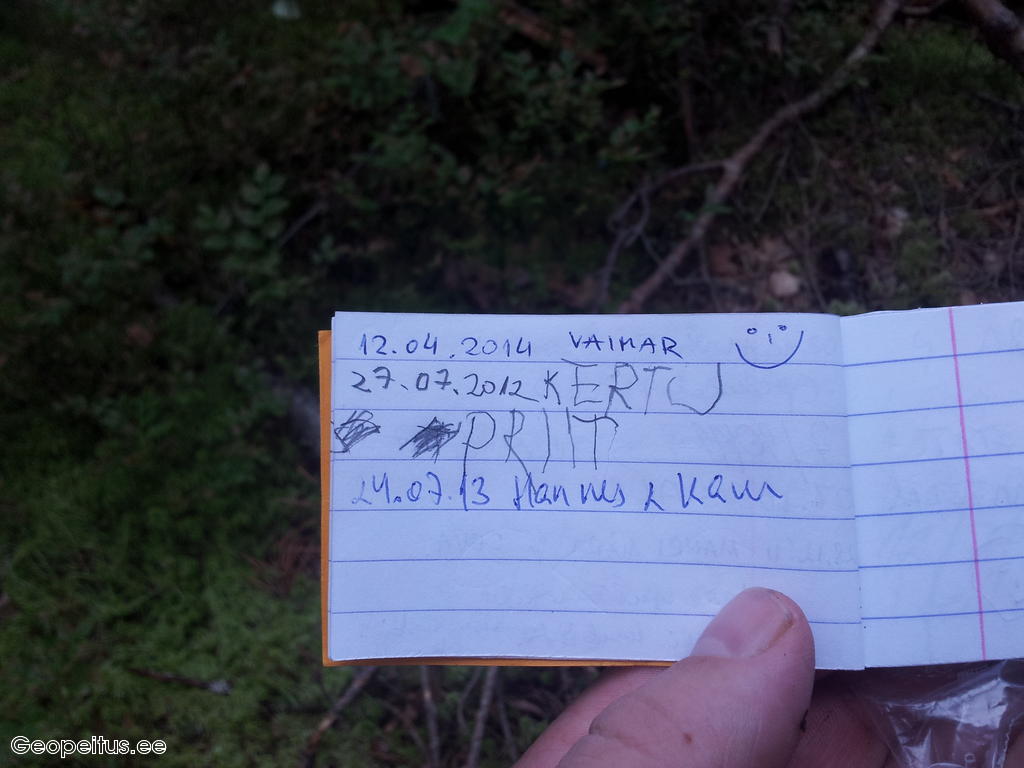 12.04.2014 VAIMAR
27.07.2012 KERTU
PRIIT
24.07.13 Hannes & Kaur
Geopeitus.ee